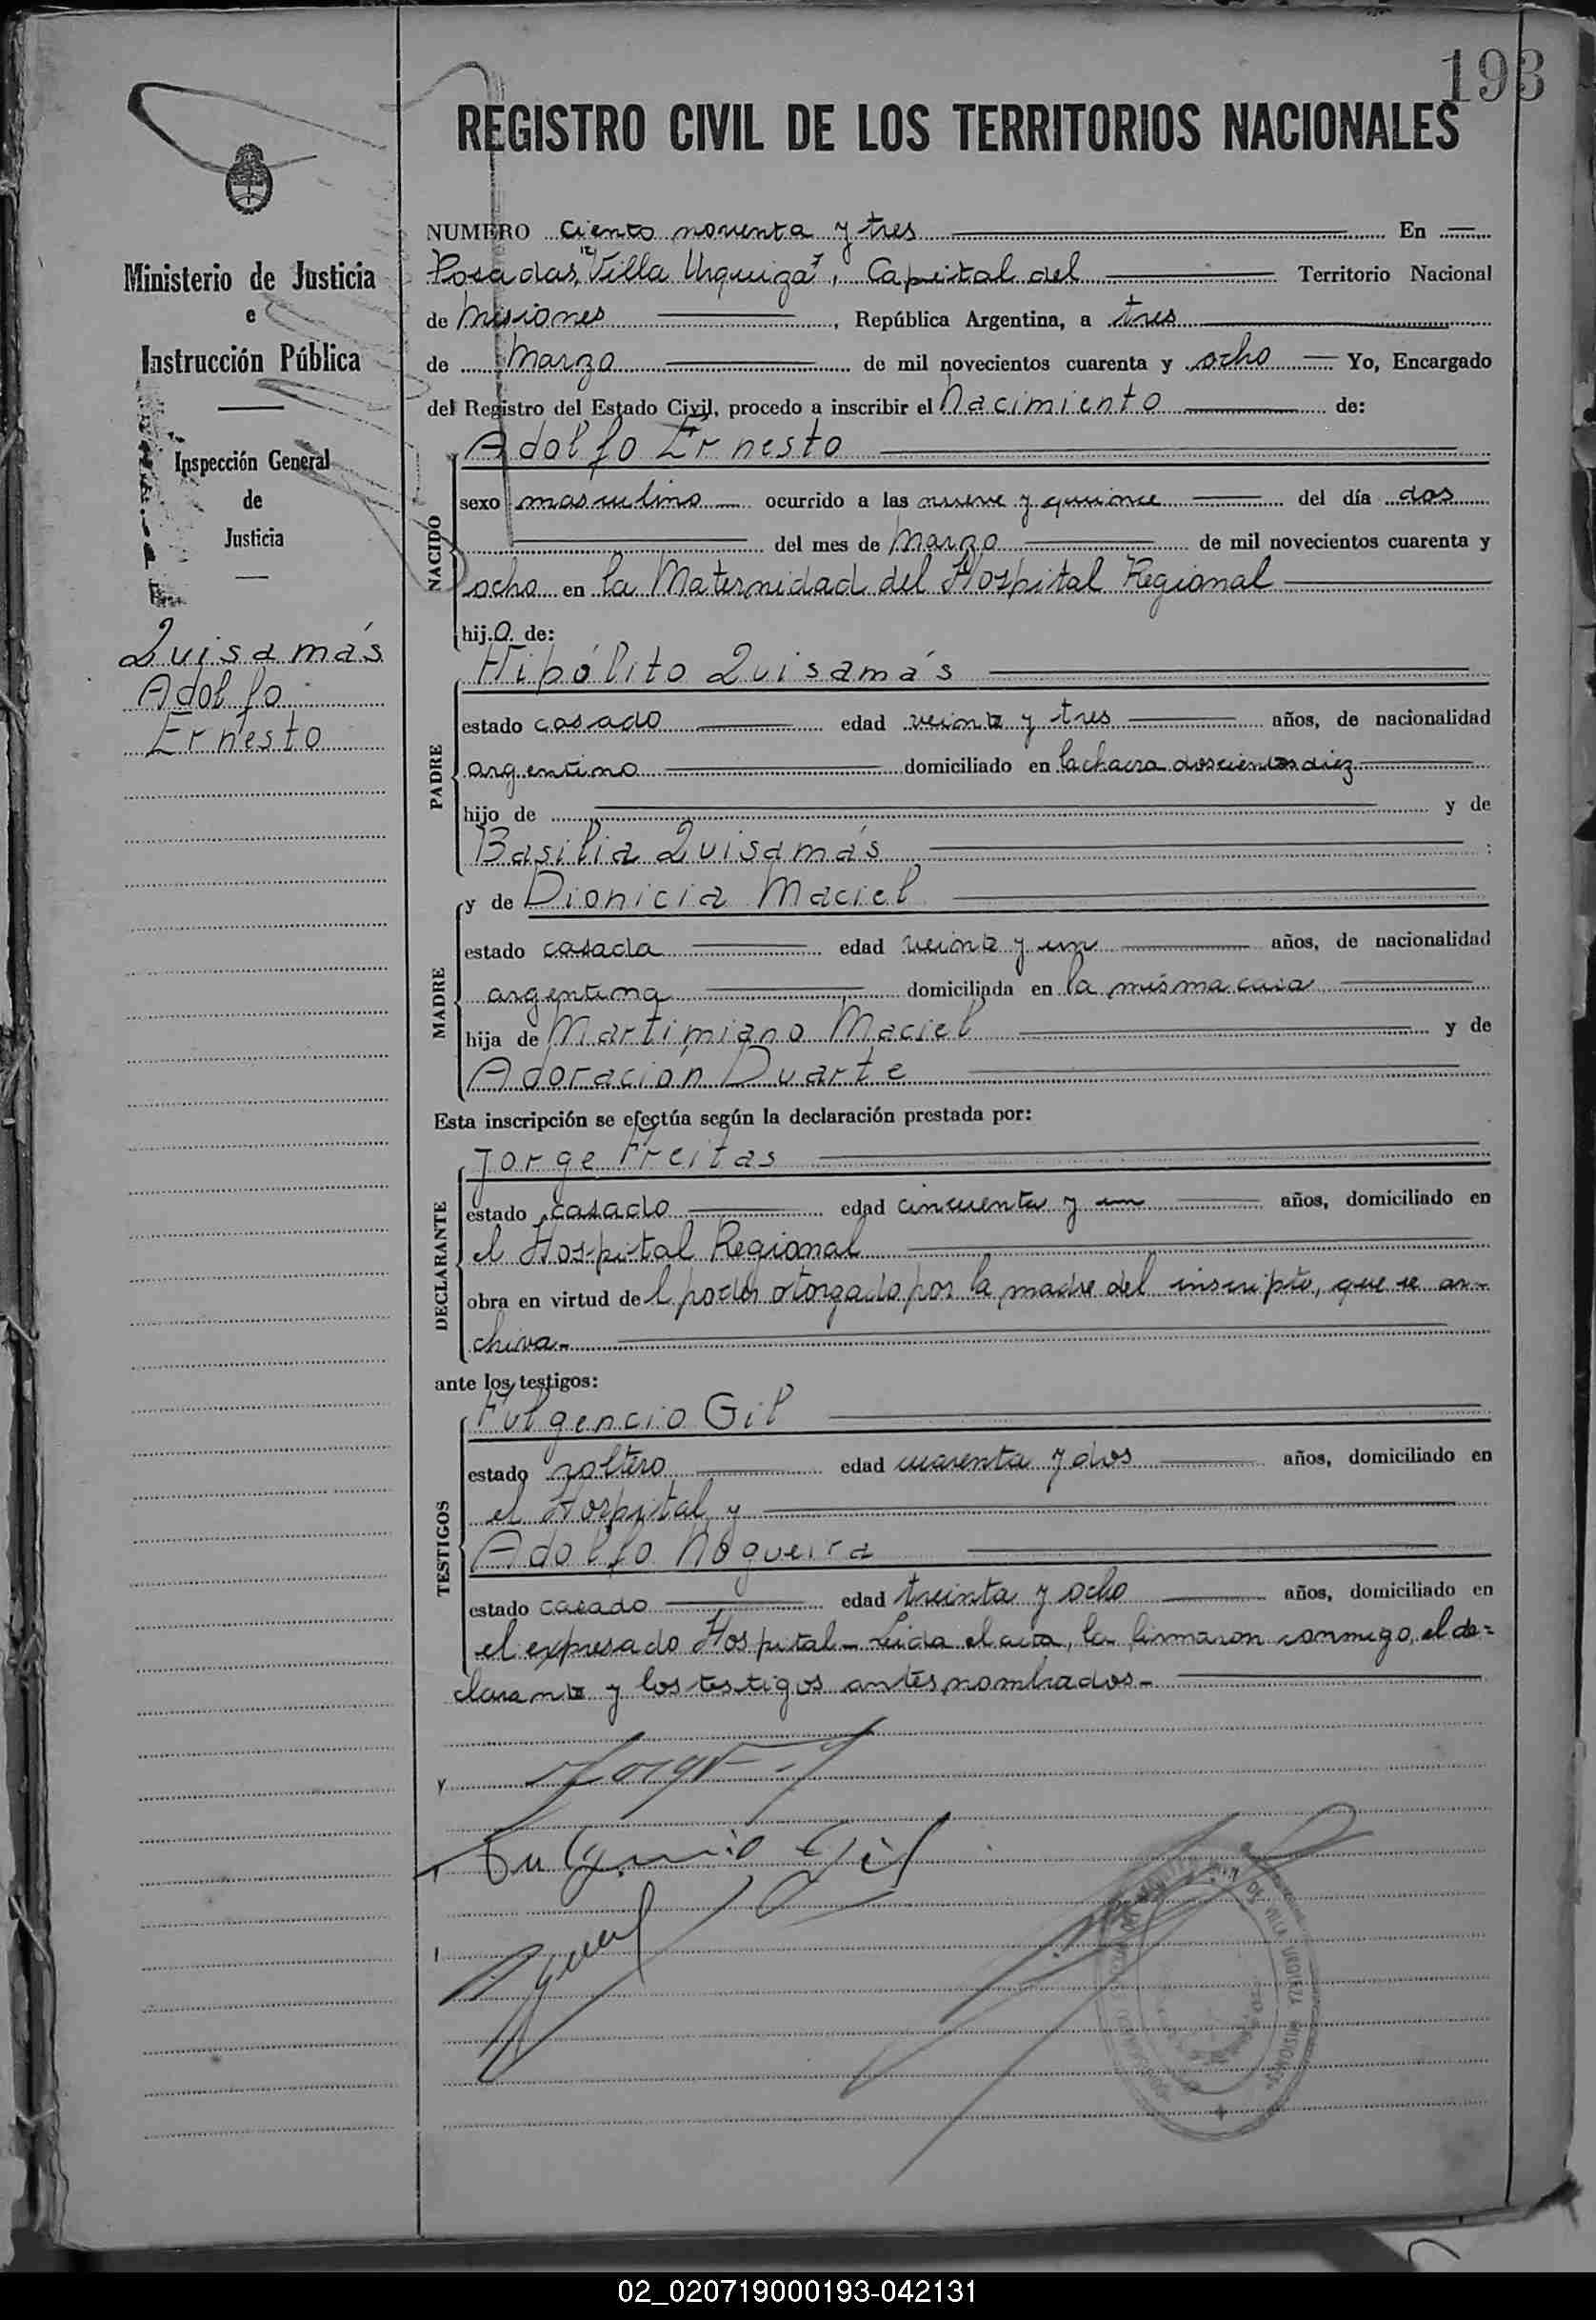 193
REGISTRO CIVIL DE LOS TERRITORIOS NACIONALES
Ministerio de Justicia
e
Instrucción Pública
Inspección General
de
Justicia
Quisamás
Adolfo
Ernesto
NUMERO ciento noventa y tres En
Posadas, "Villa Urquiza", Capital del Territorio Nacional
de Misiones, República Argentina, a tres
de Marzo de mil novecientos cuarenta y ocho Yo, Encargado
del Registro del Estado Civil, procedo a inscribir el Nacimiento de:
NACIDO
Adolfo Ernesto
sexo masculino ocurrido a las nueve y quince del día dos
del mes de Marzo de mil novecientos cuarenta y
ocho en la Maternidad del Hospital Regional
hijo de:
PADRE
Hipólito Quisamás
estado casado edad veinte y tres años, de nacionalidad
argentino domiciliado en la chacra doscientos diez
hijo de y de
Basilia Quisamás
MADRE
y de Dionicia Maciel
estado casada edad veinte y un años, de nacionalidad
argentina domiciliada en la misma casa
hija de Martimiano Maciel y de
Adoración Duarte
Esta inscripción se efectúa según la declaración prestada por:
DECLARANTE
Jorge Freitas
estado casado edad cincuenta y un años, domiciliado en
el Hospital Regional
obra en virtud del poder otorgado por la madre del inscripto, que se ar-
chiva.-
ante los testigos:
TESTIGOS
Fulgencio Gil
estado soltero edad cuarenta y dos años, domiciliado en
el Hospital y
Adolfo Nogueira
estado casado edad treinta y ocho años, domiciliado en
el expresado Hospital - Leida el acta, la firmaron conmigo, el de=
clarante y los testigos antes nombrados.-
Fulgencio Gil
DE VILLA URQUIZA MISIONES
02_020719000193-042131